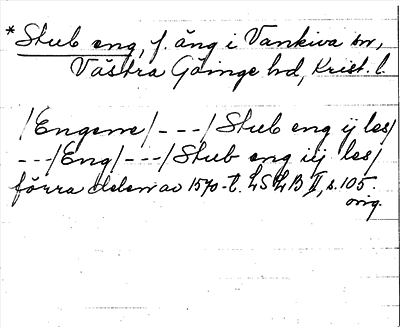 * Stub eng, f. äng i Vankiva sn,
Västra Göinge hd, Krist. l.
/Engene/ - - - / Stub eng ij les/
- - - /Eng/ - - - / Stub eng iij les/
förra delen av 1570-t. LSLB II, s. 105.
orig.